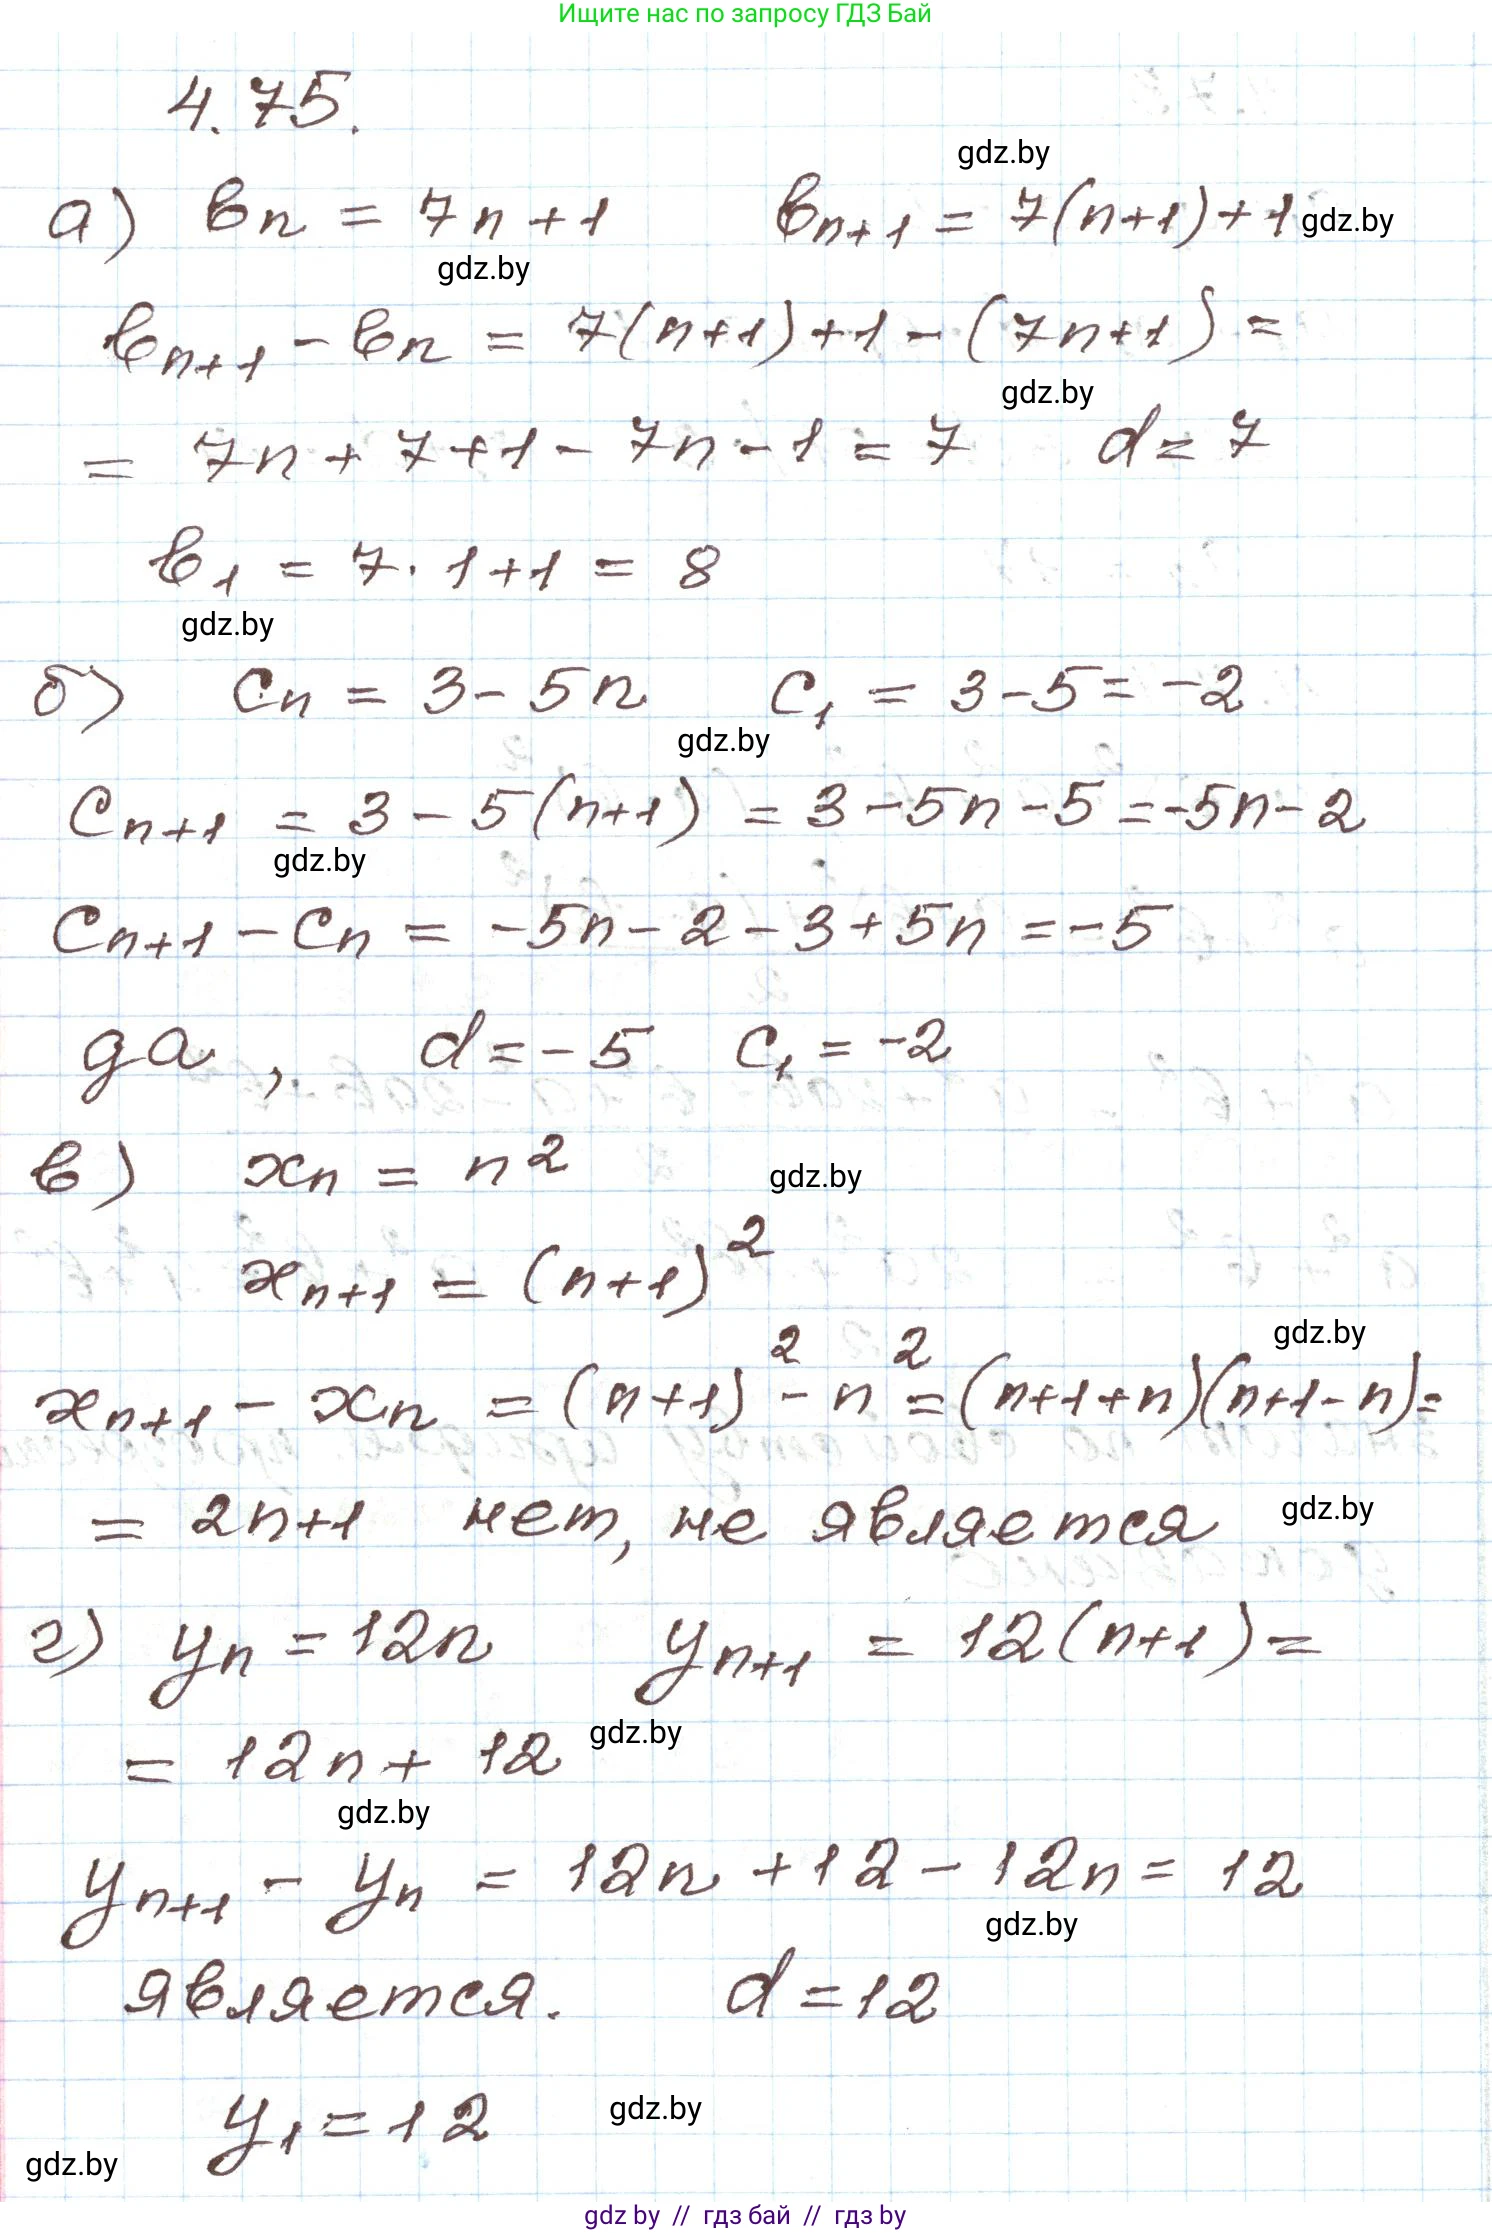 Ищите нас по запросу ГДЗ Бай
4.75.
gdz.by
а) вn = 7n + 1 вn+1 = 7(n+1)+1 gdz.by
gdz.by
вn+1 - вn = 7(n+1)+1 - (7n+1) =
gdz.by
= 7n + 7 + 1 - 7n - 1 = 7 d = 7
в1 = 7 · 1 + 1 = 8
gdz.by
б) Cn = 3 - 5n C1 = 3 - 5 = -2
gdz.by
Cn+1 = 3 - 5(n+1) = 3 - 5n - 5 = -5n - 2
gdz.by
Cn+1 - Cn = -5n - 2 - 3 + 5n = -5
да, d = -5 C1 = -2
в) xn = n²
gdz.by
xn+1 = (n+1)²
gdz.by
xn+1 - xn = (n+1)² - n² = (n+1+n)(n+1-n) =
= 2n+1 нет, не является gdz.by
г) yn = 12n yn+1 = 12(n+1) =
= 12n + 12 gdz.by
gdz.by
yn+1 - yn = 12n + 12 - 12n = 12
gdz.by
является. d = 12
y1 = 12 gdz.by
gdz.by
gdz by // гдз бай // гдз by